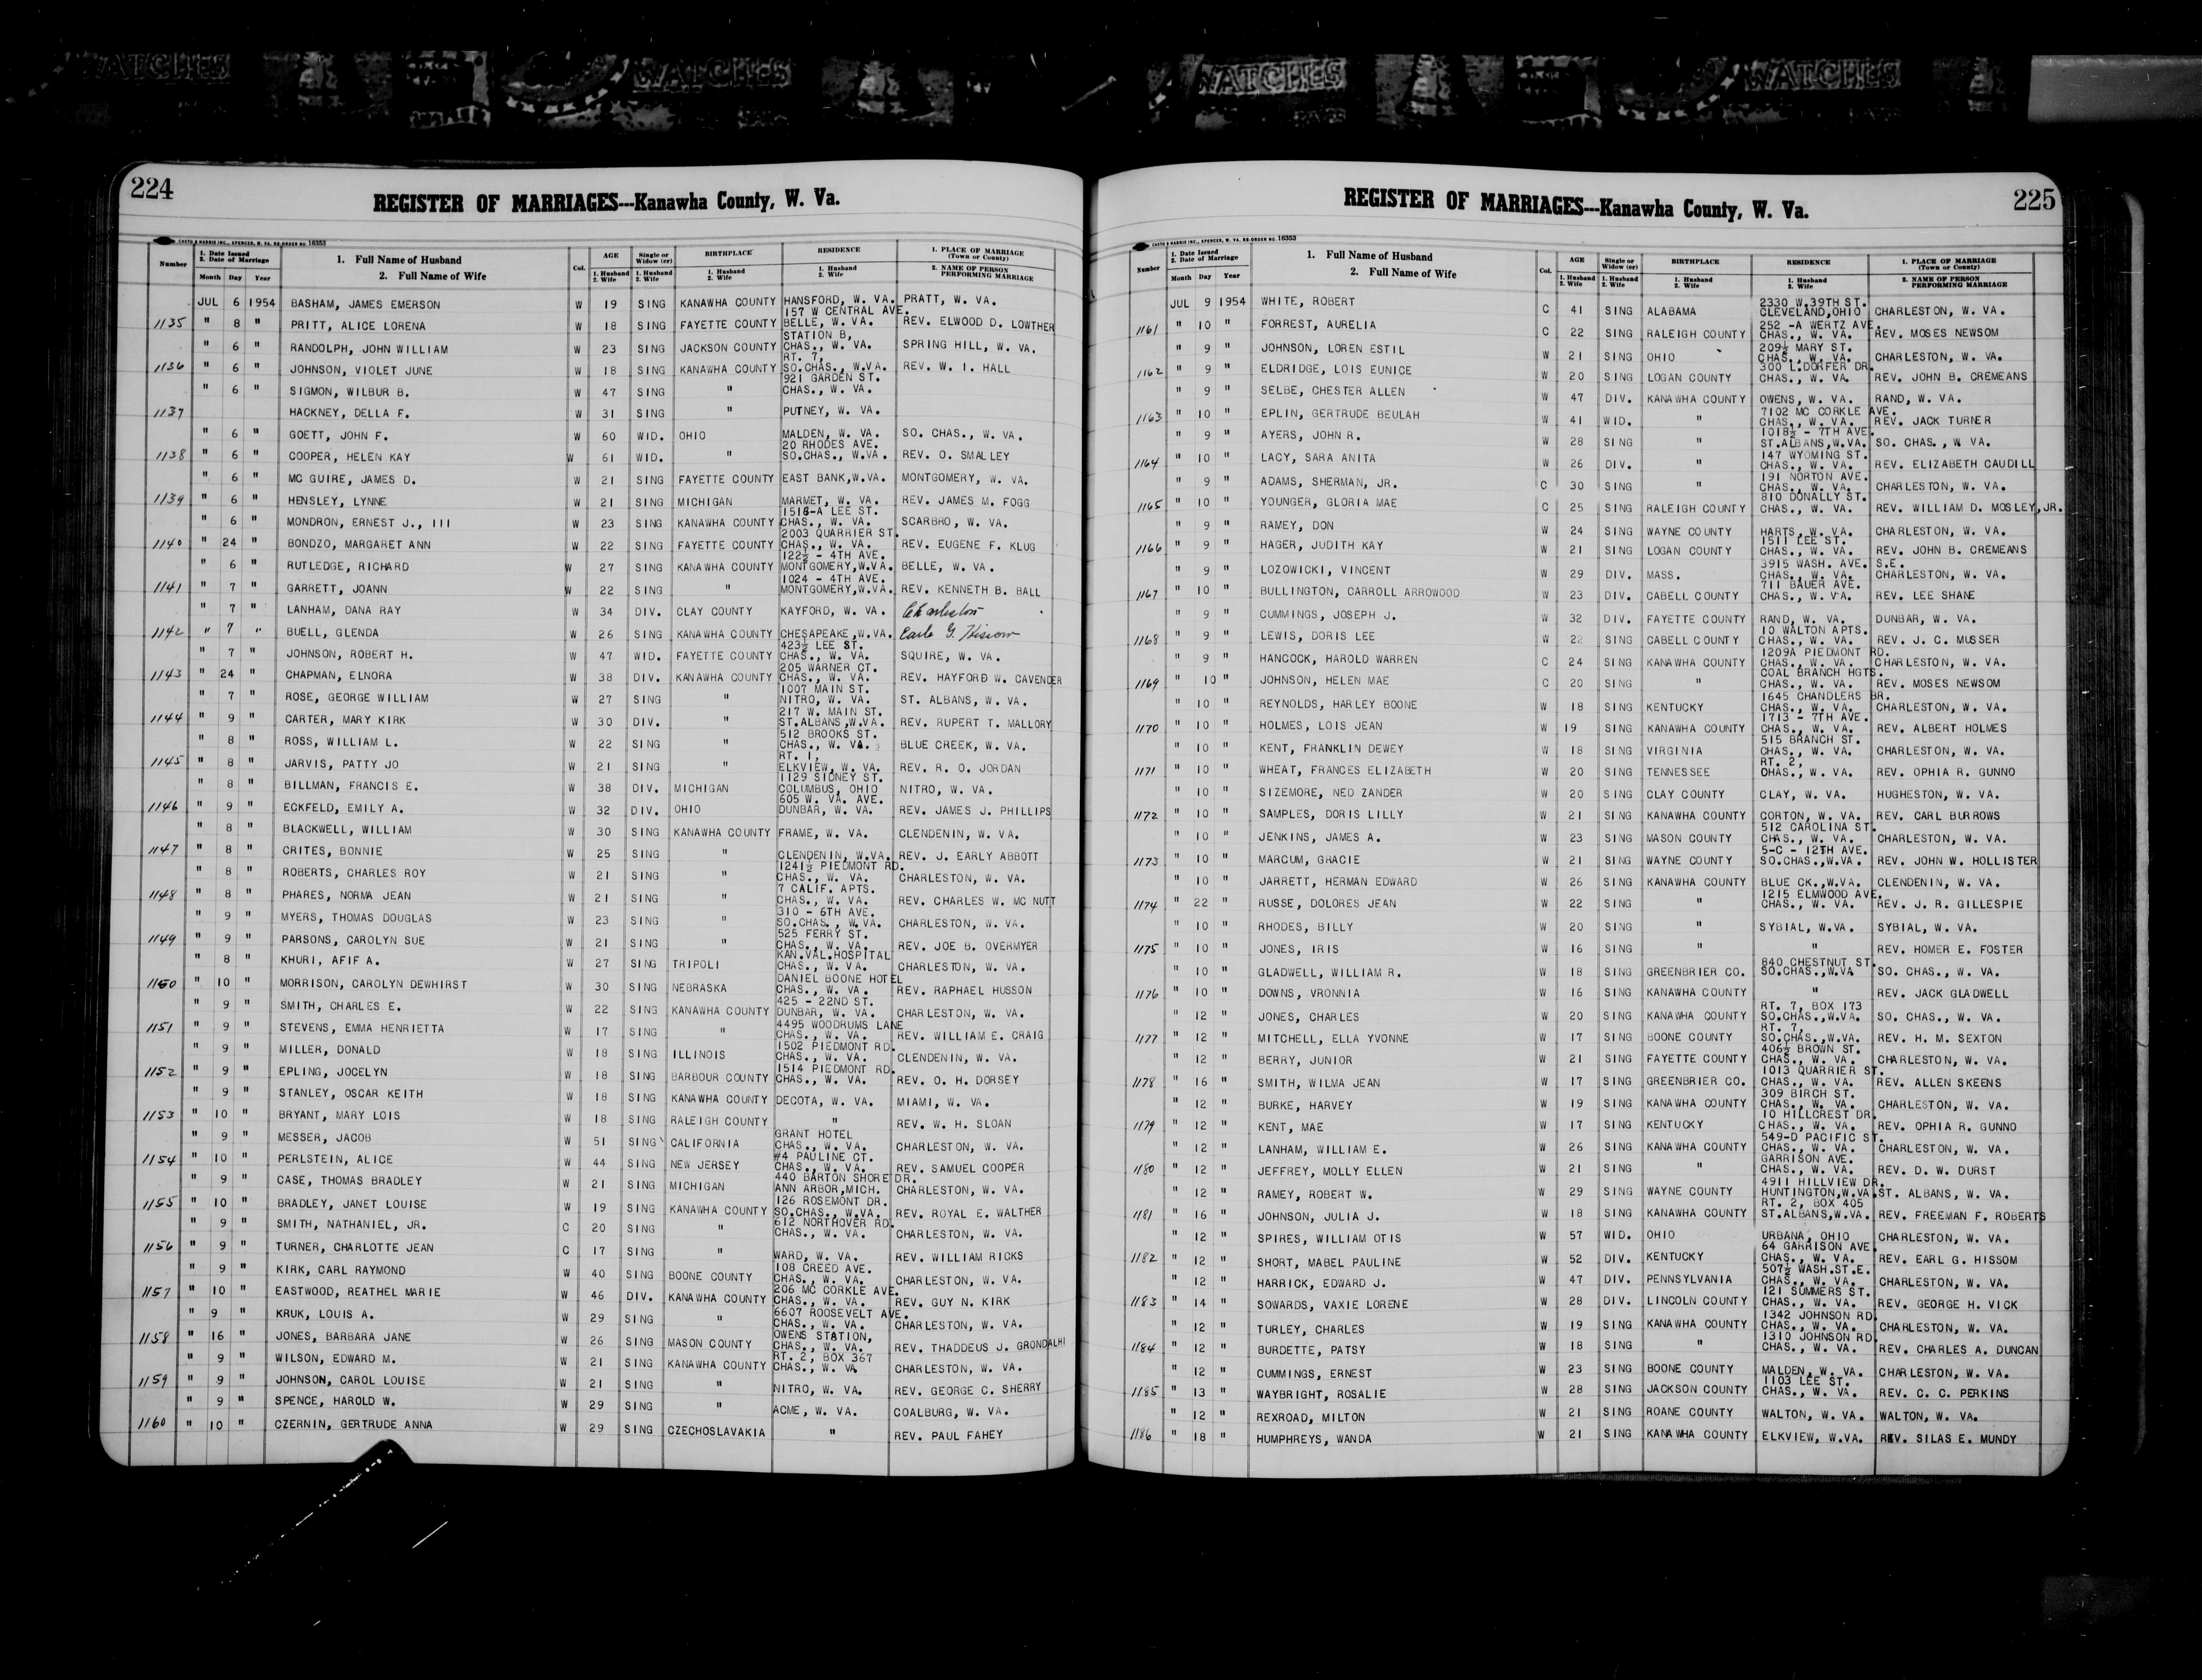 WATCHES WATCHES WATCHES WATCHES
224
REGISTER OF MARRIAGES---Kanawha County, W. Va.
CASTO & HARRIS INC., SPENCER, W. VA. RE-ORDER NO. 16353
Number | 1. Date Issued 2. Date of Marriage Month Day Year | 1. Full Name of Husband 2. Full Name of Wife | Col. | AGE 1. Husband 2. Wife | Single or Widow (er) 1. Husband 2. Wife | BIRTHPLACE 1. Husband 2. Wife | RESIDENCE 1. Husband 2. Wife | 1. PLACE OF MARRIAGE (Town or County) 2. NAME OF PERSON PERFORMING MARRIAGE
JUL 6 1954 BASHAM, JAMES EMERSON W 19 SING KANAWHA COUNTY HANSFORD, W. VA. PRATT, W. VA.
1135 " 8 " PRITT, ALICE LORENA W 18 SING FAYETTE COUNTY 157 W CENTRAL AVE. BELLE, W. VA. REV. ELWOOD D. LOWTHER
" 6 " RANDOLPH, JOHN WILLIAM W 23 SING JACKSON COUNTY STATION B, CHAS., W. VA. SPRING HILL, W. VA.
1136 " 6 " JOHNSON, VIOLET JUNE W 18 SING KANAWHA COUNTY RT. 7, SO.CHAS., W.VA. REV. W. I. HALL
" 6 " SIGMON, WILBUR B. W 47 SING " 921 GARDEN ST. CHAS., W. VA.
1137 HACKNEY, DELLA F. W 31 SING " PUTNEY, W. VA.
" 6 " GOETT, JOHN F. W 60 WID. OHIO MALDEN, W. VA. SO. CHAS., W. VA.
1138 " 6 " COOPER, HELEN KAY W 61 WID. " 20 RHODES AVE. SO.CHAS., W.VA. REV. O. SMALLEY
" 6 " MC GUIRE, JAMES D. W 21 SING FAYETTE COUNTY EAST BANK,W.VA. MONTGOMERY, W. VA.
1139 " 6 " HENSLEY, LYNNE W 21 SING MICHIGAN MARMET, W. VA. REV. JAMES M. FOGG
" 6 " MONDRON, ERNEST J., III W 23 SING KANAWHA COUNTY 1516-A LEE ST. CHAS., W. VA. SCARBRO, W. VA.
1140 " 24 " BONDZO, MARGARET ANN W 22 SING FAYETTE COUNTY 2003 QUARRIER ST. CHAS., W. VA. REV. EUGENE F. KLUG
" 6 " RUTLEDGE, RICHARD W 27 SING KANAWHA COUNTY 122½ - 4TH AVE. MONTGOMERY,W.VA. BELLE, W. VA.
1141 " 7 " GARRETT, JOANN W 22 SING " 1024 - 4TH AVE. MONTGOMERY,W.VA. REV. KENNETH B. BALL
" 7 " LANHAM, DANA RAY W 34 DIV. CLAY COUNTY KAYFORD, W. VA. Charleston
1142 " 7 " BUELL, GLENDA W 26 SING KANAWHA COUNTY CHESAPEAKE,W.VA. Earle G. Hissom
" 7 " JOHNSON, ROBERT H. W 47 WID. FAYETTE COUNTY 423½ LEE ST. CHAS., W. VA. SQUIRE, W. VA.
1143 " 24 " CHAPMAN, ELNORA W 38 DIV. KANAWHA COUNTY 205 WARNER CT. CHAS., W. VA. REV. HAYFORD W. CAVENDER
" 7 " ROSE, GEORGE WILLIAM W 27 SING " 1007 MAIN ST. NITRO, W. VA. ST. ALBANS, W. VA.
1144 " 9 " CARTER, MARY KIRK W 30 DIV. " 217 W. MAIN ST. ST.ALBANS,W.VA. REV. RUPERT T. MALLORY
" 8 " ROSS, WILLIAM L. W 22 SING " 512 BROOKS ST. CHAS., W. VA. BLUE CREEK, W. VA.
1145 " 8 " JARVIS, PATTY JO W 21 SING " RT. 1, ELKVIEW, W. VA. REV. R. O. JORDAN
" 8 " BILLMAN, FRANCIS E. W 38 DIV. MICHIGAN 1129 SIDNEY ST. COLUMBUS, OHIO NITRO, W. VA.
1146 " 9 " ECKFELD, EMILY A. W 32 DIV. OHIO 605 W. VA. AVE. DUNBAR, W. VA. REV. JAMES J. PHILLIPS
" 8 " BLACKWELL, WILLIAM W 30 SING KANAWHA COUNTY FRAME, W. VA. CLENDENIN, W. VA.
1147 " 8 " CRITES, BONNIE W 25 SING " CLENDENIN, W.VA. REV. J. EARLY ABBOTT
" 8 " ROBERTS, CHARLES ROY W 21 SING " 1241½ PIEDMONT RD. CHAS., W. VA. CHARLESTON, W. VA.
1148 " 8 " PHARES, NORMA JEAN W 21 SING " 7 CALIF. APTS. CHAS., W. VA. REV. CHARLES W. MC NUTT
" 9 " MYERS, THOMAS DOUGLAS W 23 SING " 310 - 6TH AVE. SO.CHAS., W.VA. CHARLESTON, W. VA.
1149 " 9 " PARSONS, CAROLYN SUE W 21 SING " 525 FERRY ST. CHAS., W. VA. REV. JOE B. OVERMYER
" 8 " KHURI, AFIF A. W 27 SING TRIPOLI KAN.VAL.HOSPITAL CHAS., W. VA. CHARLESTON, W. VA.
1150 " 10 " MORRISON, CAROLYN DEWHIRST W 30 SING NEBRASKA DANIEL BOONE HOTEL CHAS., W. VA. REV. RAPHAEL HUSSON
" 9 " SMITH, CHARLES E. W 22 SING KANAWHA COUNTY 425 - 22ND ST. DUNBAR, W. VA. CHARLESTON, W. VA.
1151 " 9 " STEVENS, EMMA HENRIETTA W 17 SING " 4495 WOODRUMS LANE CHAS., W. VA. REV. WILLIAM E. CRAIG
" 9 " MILLER, DONALD W 18 SING ILLINOIS 1502 PIEDMONT RD. CHAS., W. VA. CLENDENIN, W. VA.
1152 " 9 " EPLING, JOCELYN W 18 SING BARBOUR COUNTY 1514 PIEDMONT RD. CHAS., W. VA. REV. O. H. DORSEY
" 9 " STANLEY, OSCAR KEITH W 18 SING KANAWHA COUNTY DECOTA, W. VA. MIAMI, W. VA.
1153 " 10 " BRYANT, MARY LOIS W 18 SING RALEIGH COUNTY " REV. W. H. SLOAN
" 9 " MESSER, JACOB W 51 SING CALIFORNIA GRANT HOTEL CHAS., W. VA. CHARLESTON, W. VA.
1154 " 10 " PERLSTEIN, ALICE W 44 SING NEW JERSEY #4 PAULINE CT. CHAS., W. VA. REV. SAMUEL COOPER
" 9 " CASE, THOMAS BRADLEY W 21 SING MICHIGAN 440 BARTON SHORE DR. ANN ARBOR,MICH. CHARLESTON, W. VA.
1155 " 10 " BRADLEY, JANET LOUISE W 19 SING KANAWHA COUNTY 126 ROSEMONT DR. SO.CHAS., W.VA. REV. ROYAL E. WALTHER
" 9 " SMITH, NATHANIEL, JR. C 20 SING " 612 NORTHOVER RD. CHAS., W. VA. CHARLESTON, W. VA.
1156 " 9 " TURNER, CHARLOTTE JEAN C 17 SING " WARD, W. VA. REV. WILLIAM RICKS
" 9 " KIRK, CARL RAYMOND W 40 SING BOONE COUNTY 108 CREED AVE. CHAS., W. VA. CHARLESTON, W. VA.
1157 " 10 " EASTWOOD, REATHEL MARIE W 46 DIV. KANAWHA COUNTY 206 MC CORKLE AVE. CHAS., W. VA. REV. GUY N. KIRK
" 9 " KRUK, LOUIS A. W 29 SING " 6607 ROOSEVELT AVE. CHAS., W. VA. CHARLESTON, W. VA.
1158 " 16 " JONES, BARBARA JANE W 26 SING MASON COUNTY OWENS STATION, CHAS., W. VA. REV. THADDEUS J. GRONDALHI
" 9 " WILSON, EDWARD M. W 21 SING KANAWHA COUNTY RT. 2, BOX 367 CHAS., W. VA CHARLESTON, W. VA.
1159 " 9 " JOHNSON, CAROL LOUISE W 21 SING " NITRO, W. VA. REV. GEORGE C. SHERRY
" 9 " SPENCE, HAROLD W. W 29 SING " ACME, W. VA. COALBURG, W. VA.
1160 " 10 " CZERNIN, GERTRUDE ANNA W 29 SING CZECHOSLAVAKIA " REV. PAUL FAHEY
225
REGISTER OF MARRIAGES---Kanawha County, W. Va.
CASTO & HARRIS INC., SPENCER, W. VA. RE-ORDER NO. 16353
Number | 1. Date Issued 2. Date of Marriage Month Day Year | 1. Full Name of Husband 2. Full Name of Wife | Col. | AGE 1. Husband 2. Wife | Single or Widow (er) 1. Husband 2. Wife | BIRTHPLACE 1. Husband 2. Wife | RESIDENCE 1. Husband 2. Wife | 1. PLACE OF MARRIAGE (Town or County) 2. NAME OF PERSON PERFORMING MARRIAGE
JUL 9 1954 WHITE, ROBERT C 41 SING ALABAMA 2330 W.39TH ST. CLEVELAND,OHIO CHARLESTON, W. VA.
1161 " 10 " FORREST, AURELIA C 22 SING RALEIGH COUNTY 252 -A WERTZ AVE. CHAS., W. VA. REV. MOSES NEWSOM
" 9 " JOHNSON, LOREN ESTIL W 21 SING OHIO 209½ MARY ST. CHAS., W. VA. CHARLESTON, W. VA.
1162 " 9 " ELDRIDGE, LOIS EUNICE W 20 SING LOGAN COUNTY 300 L.DORFER DR. CHAS., W. VA. REV. JOHN B. CREMEANS
" 9 " SELBE, CHESTER ALLEN W 47 DIV. KANAWHA COUNTY OWENS, W. VA. RAND, W. VA.
1163 " 10 " EPLIN, GERTRUDE BEULAH W 41 WID. " 7102 MC CORKLE AVE. CHAS., W. VA. REV. JACK TURNER
" 9 " AYERS, JOHN R. W 28 SING " 1018½ - 7TH AVE. ST.ALBANS,W.VA. SO. CHAS., W VA.
1164 " 10 " LACY, SARA ANITA W 26 DIV. " 147 WYOMING ST. CHAS., W. VA. REV. ELIZABETH CAUDILL
" 9 " ADAMS, SHERMAN, JR. C 30 SING " 191 NORTON AVE. CHAS., W. VA. CHARLESTON, W. VA.
1165 " 10 " YOUNGER, GLORIA MAE C 25 SING RALEIGH COUNTY 810 DONALLY ST. CHAS., W. VA. REV. WILLIAM D. MOSLEY,JR.
" 9 " RAMEY, DON W 24 SING WAYNE COUNTY HARTS, W. VA. CHARLESTON, W. VA.
1166 " 9 " HAGER, JUDITH KAY W 21 SING LOGAN COUNTY 1511 LEE ST. CHAS., W. VA. REV. JOHN B. CREMEANS
" 9 " LOZOWICKI, VINCENT W 29 DIV. MASS. 3915 WASH. AVE. S.E. CHAS., W. VA. CHARLESTON, W. VA.
1167 " 10 " BULLINGTON, CARROLL ARROWOOD W 23 DIV. CABELL COUNTY 711 BAUER AVE. CHAS., W. VA. REV. LEE SHANE
" 9 " CUMMINGS, JOSEPH J. W 32 DIV. FAYETTE COUNTY RAND, W. VA. DUNBAR, W. VA.
1168 " 9 " LEWIS, DORIS LEE W 22 SING CABELL COUNTY 10 WALTON APTS. CHAS., W. VA. REV. J. C. MUSSER
" 9 " HANCOCK, HAROLD WARREN C 24 SING KANAWHA COUNTY 1209A PIEDMONT RD. CHAS., W. VA. CHARLESTON, W. VA.
1169 " 10 " JOHNSON, HELEN MAE C 20 SING " COAL BRANCH HGTS. CHAS., W. VA. REV. MOSES NEWSOM
" 10 " REYNOLDS, HARLEY BOONE W 18 SING KENTUCKY 1645 CHANDLERS BR. CHAS., W. VA. CHARLESTON, W. VA.
1170 " 10 " HOLMES, LOIS JEAN W 19 SING KANAWHA COUNTY 1713 - 7TH AVE. CHAS., W. VA. REV. ALBERT HOLMES
" 10 " KENT, FRANKLIN DEWEY W 18 SING VIRGINIA 515 BRANCH ST. CHAS., W. VA. CHARLESTON, W. VA.
1171 " 10 " WHEAT, FRANCES ELIZABETH W 20 SING TENNESSEE RT. 2, CHAS., W. VA. REV. OPHIA R. GUNNO
" 10 " SIZEMORE, NED ZANDER W 20 SING CLAY COUNTY CLAY, W. VA. HUGHESTON, W. VA.
1172 " 10 " SAMPLES, DORIS LILLY W 21 SING KANAWHA COUNTY CORTON, W. VA. REV. CARL BURROWS
" 10 " JENKINS, JAMES A. W 23 SING MASON COUNTY 512 CAROLINA ST. CHAS., W. VA. CHARLESTON, W. VA.
1173 " 10 " MARCUM, GRACIE W 21 SING WAYNE COUNTY 5-C - 12TH AVE. SO.CHAS.,W.VA. REV. JOHN W. HOLLISTER
" 10 " JARRETT, HERMAN EDWARD W 26 SING KANAWHA COUNTY BLUE CK.,W.VA. CLENDENIN, W. VA.
1174 " 22 " RUSSE, DOLORES JEAN W 22 SING " 1215 ELMWOOD AVE. CHAS., W. VA. REV. J. R. GILLESPIE
" 10 " RHODES, BILLY W 20 SING " SYBIAL, W.VA. SYBIAL, W. VA.
1175 " 10 " JONES, IRIS W 16 SING " " REV. HOMER E. FOSTER
" 10 " GLADWELL, WILLIAM R. W 18 SING GREENBRIER CO. 840 CHESTNUT ST. SO.CHAS.,W.VA SO. CHAS., W. VA.
1176 " 10 " DOWNS, VRONNIA W 16 SING KANAWHA COUNTY " REV. JACK GLADWELL
" 12 " JONES, CHARLES W 20 SING KANAWHA COUNTY RT. 7, BOX 173 SO.CHAS.,W.VA. SO. CHAS., W. VA.
1177 " 12 " MITCHELL, ELLA YVONNE W 17 SING BOONE COUNTY RT. 7, SO.CHAS.,W.VA. REV. H. M. SEXTON
" 12 " BERRY, JUNIOR W 21 SING FAYETTE COUNTY 406½ BROWN ST. CHAS., W. VA. CHARLESTON, W. VA.
1178 " 16 " SMITH, WILMA JEAN W 17 SING GREENBRIER CO. 1013 QUARRIER ST. CHAS., W. VA. REV. ALLEN SKEENS
" 12 " BURKE, HARVEY W 19 SING KANAWHA COUNTY 309 BIRCH ST. CHAS., W. VA. CHARLESTON, W. VA.
1179 " 12 " KENT, MAE W 17 SING KENTUCKY 10 HILLCREST DR. CHAS., W. VA. REV. OPHIA R. GUNNO
" 12 " LANHAM, WILLIAM E. W 26 SING KANAWHA COUNTY 549-D PACIFIC ST. CHAS., W. VA. CHARLESTON, W. VA.
1180 " 12 " JEFFREY, MOLLY ELLEN W 21 SING " GARRISON AVE. CHAS., W. VA. REV. D. W. DURST
" 12 " RAMEY, ROBERT W. W 29 SING WAYNE COUNTY 4911 HILLVIEW DR. HUNTINGTON,W.VA. ST. ALBANS, W. VA.
1181 " 16 " JOHNSON, JULIA J. W 18 SING KANAWHA COUNTY RT. 2, BOX 405 ST.ALBANS,W.VA. REV. FREEMAN F. ROBERTS
" 12 " SPIRES, WILLIAM OTIS W 57 WID. OHIO URBANA, OHIO CHARLESTON, W. VA.
1182 " 12 " SHORT, MABEL PAULINE W 52 DIV. KENTUCKY 64 GARRISON AVE. CHAS., W. VA. REV. EARL G. HISSOM
" 12 " HARRICK, EDWARD J. W 47 DIV. PENNSYLVANIA 507½ WASH.ST.E. CHAS., W. VA. CHARLESTON, W. VA.
1183 " 14 " SOWARDS, VAXIE LORENE W 28 DIV. LINCOLN COUNTY 121 SUMMERS ST. CHAS., W. VA. REV. GEORGE H. VICK
" 12 " TURLEY, CHARLES W 19 SING KANAWHA COUNTY 1342 JOHNSON RD. CHAS., W. VA. CHARLESTON, W. VA.
1184 " 12 " BURDETTE, PATSY W 18 SING " 1310 JOHNSON RD. CHAS., W. VA. REV. CHARLES A. DUNCAN
" 12 " CUMMINGS, ERNEST W 23 SING BOONE COUNTY MALDEN, W. VA. CHARLESTON, W. VA.
1185 " 13 " WAYBRIGHT, ROSALIE W 28 SING JACKSON COUNTY 1103 LEE ST. CHAS., W. VA. REV. C. C. PERKINS
" 12 " REXROAD, MILTON W 21 SING ROANE COUNTY WALTON, W. VA. WALTON, W. VA.
1186 " 18 " HUMPHREYS, WANDA W 21 SING KANAWHA COUNTY ELKVIEW, W.VA. REV. SILAS E. MUNDY